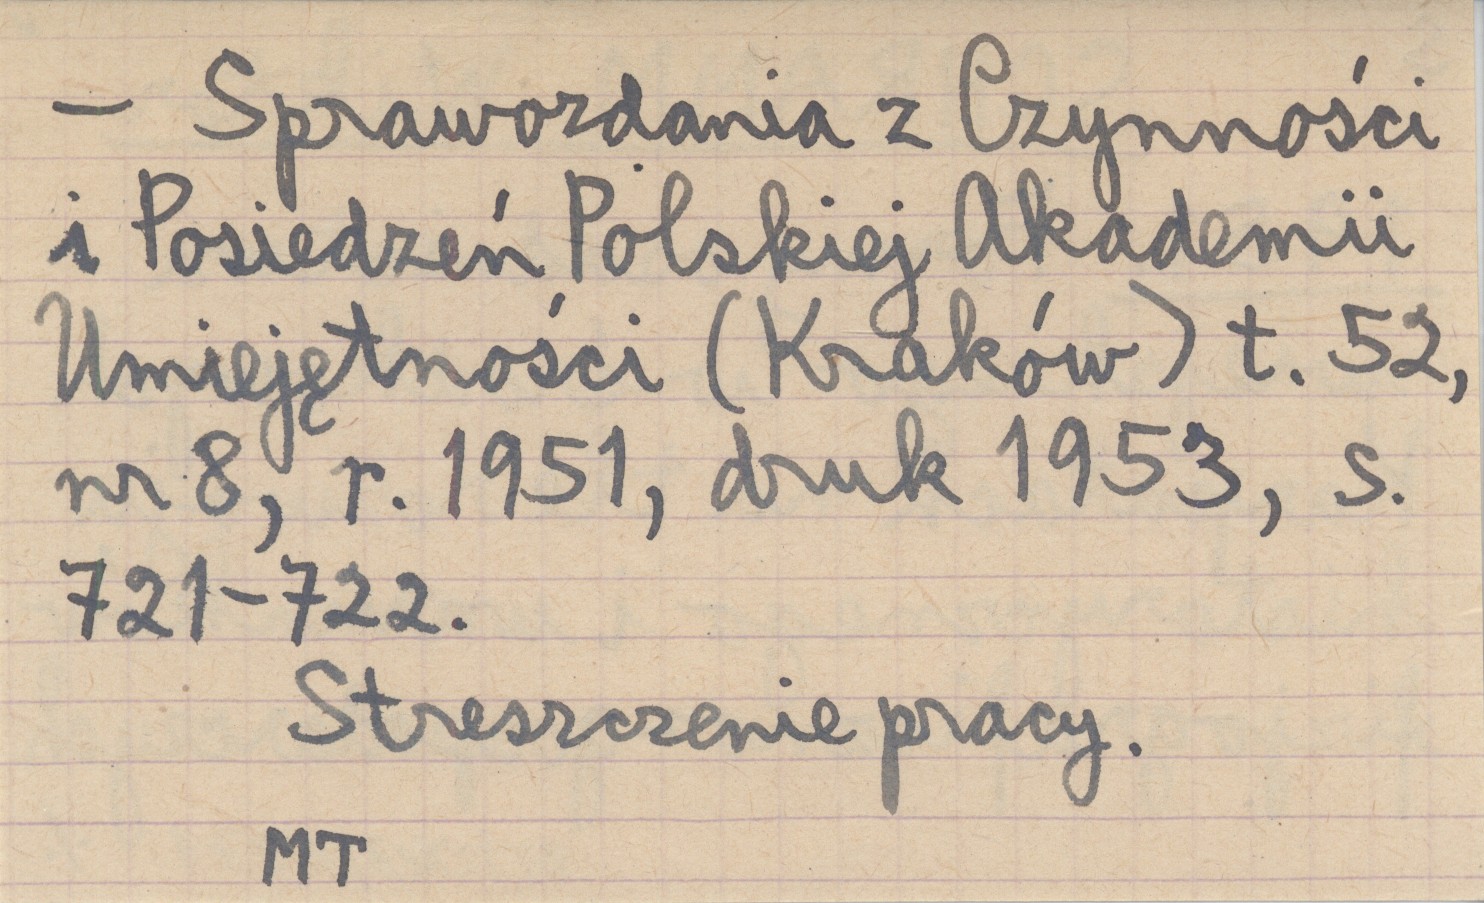 – Sprawozdania z Czynności
i Posiedzeń Polskiej Akademii
Umiejętności (Kraków) t. 52,
nr 8, r. 1951, druk 1953, s.
721–722.
Streszczenie pracy.
MT